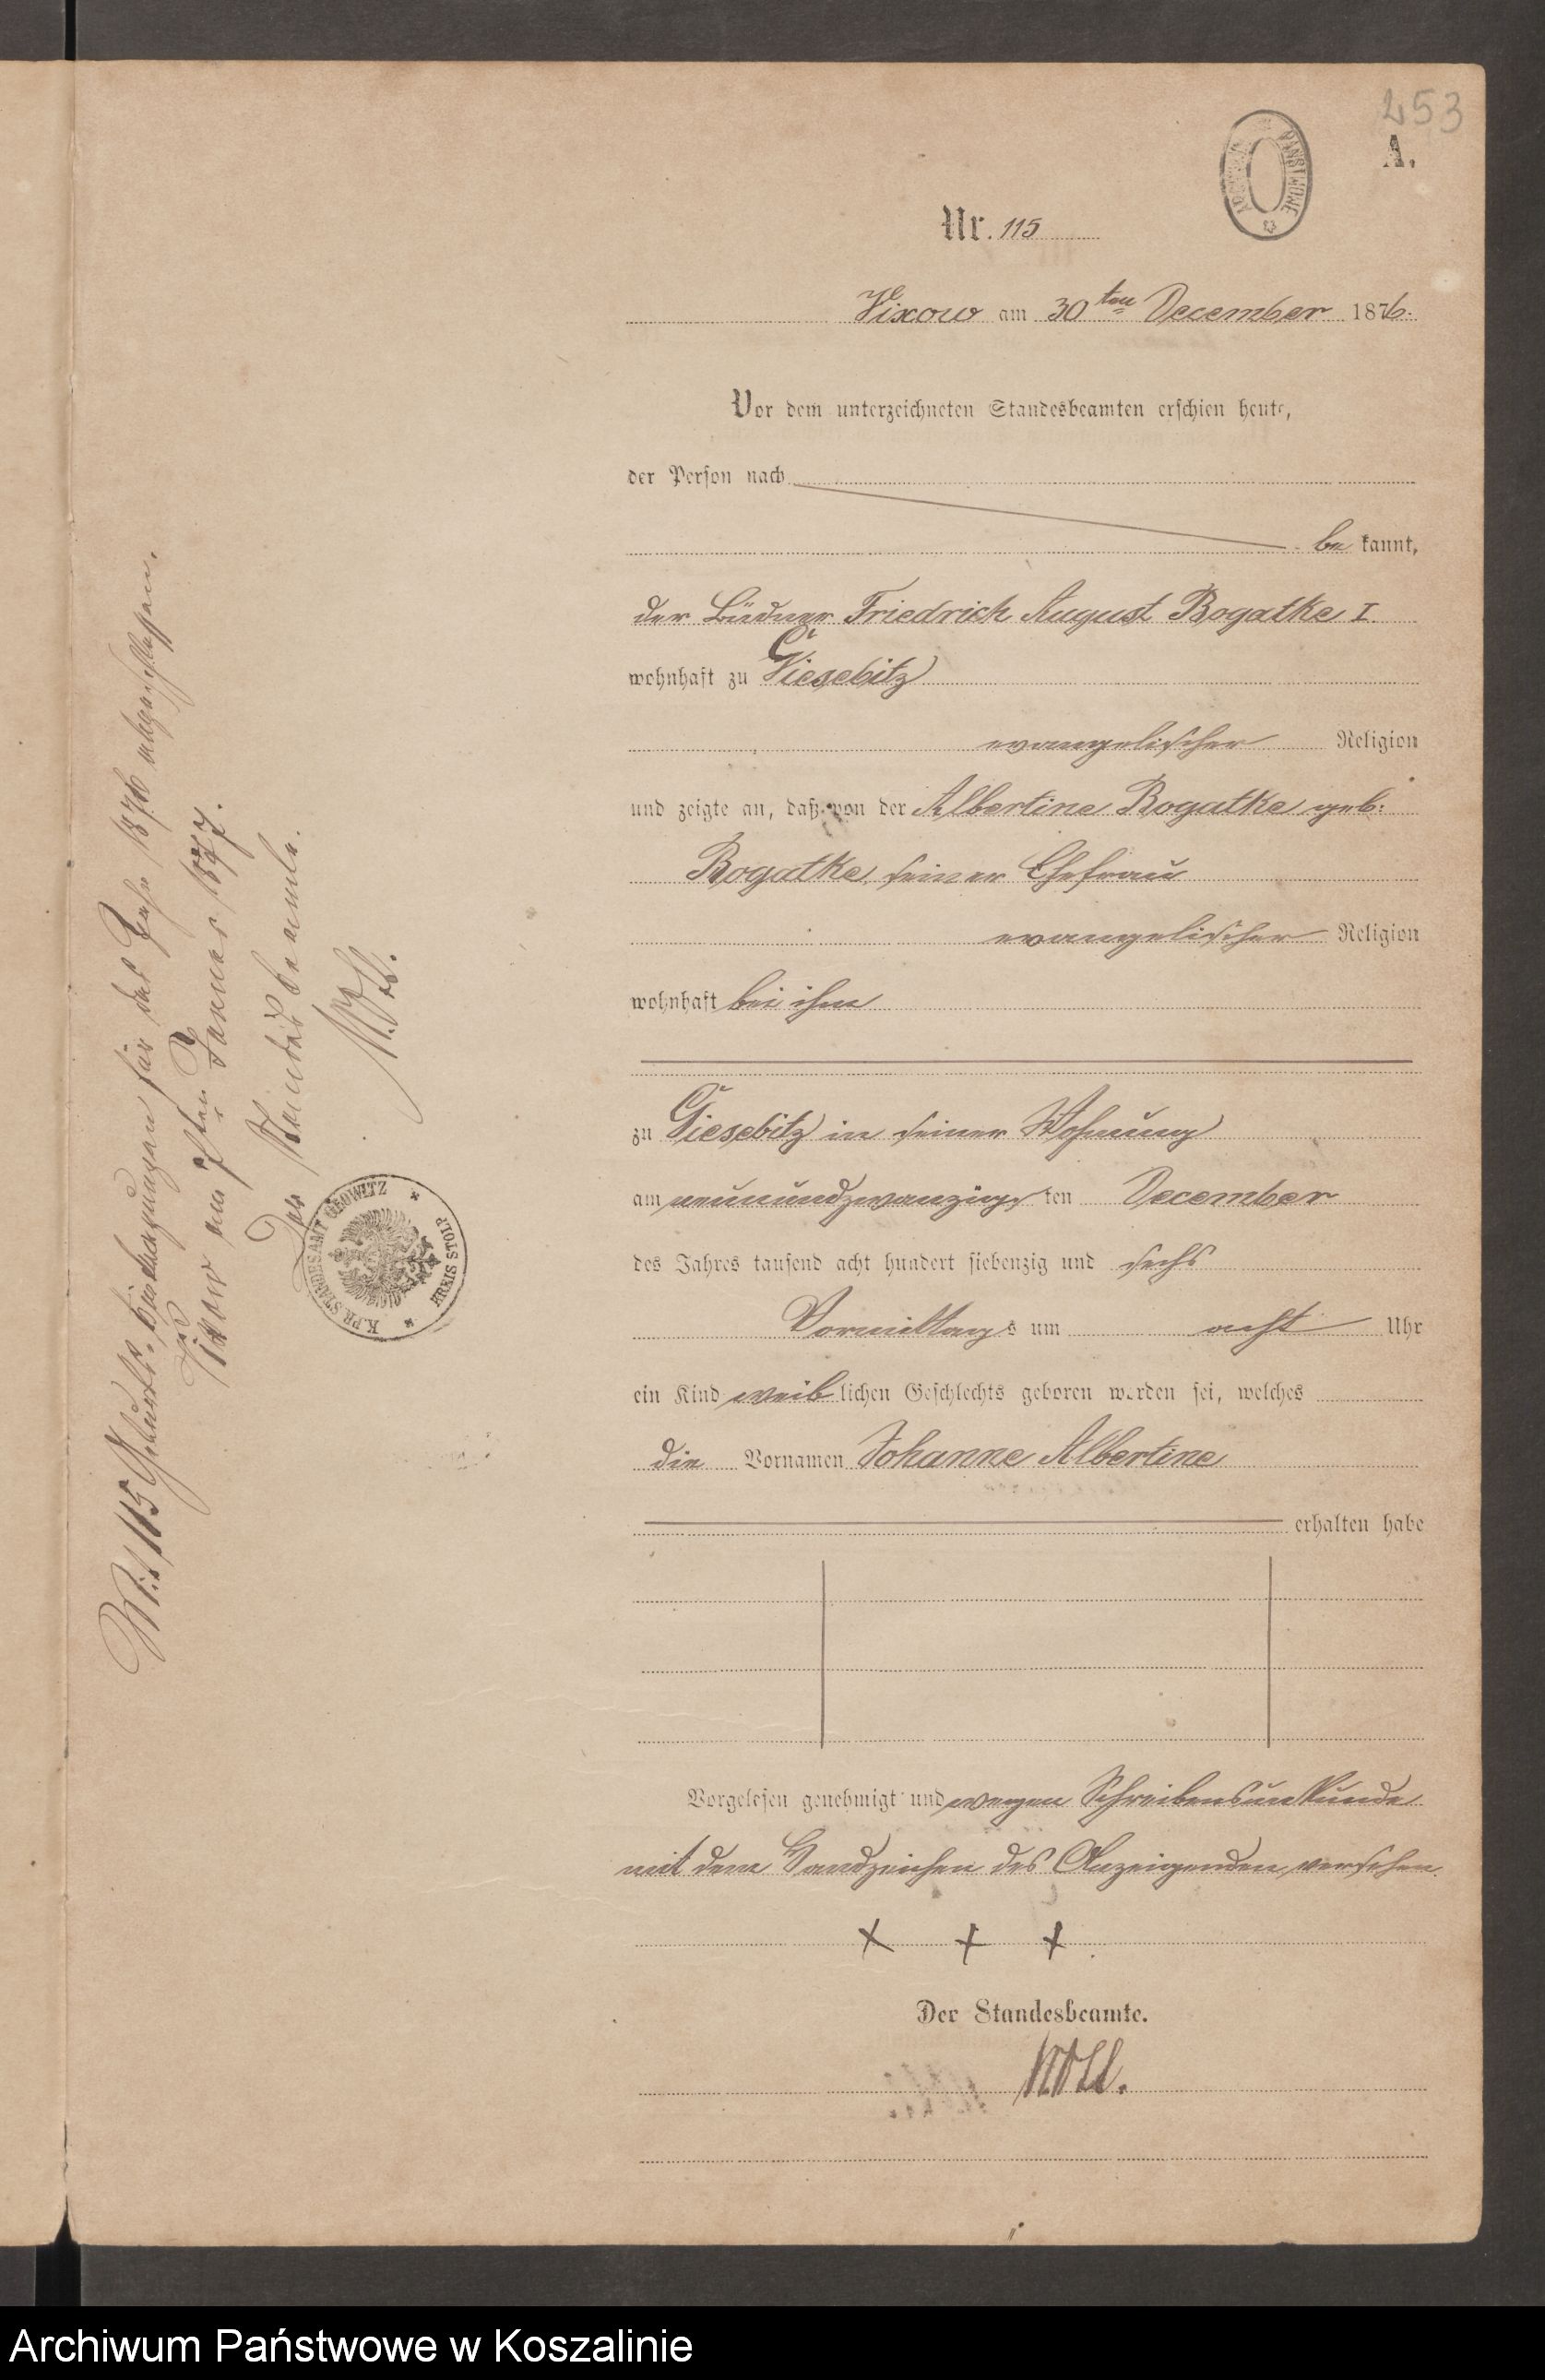 253
A.
ARCHIWUM PAŃSTWOWE
Nr. 115
Vixow am 30ten December 1876.
Vor dem unterzeichneten Standesbeamten erschien heute,
der Person nach
bekannt,
der Büdner Friedrich August Bogatke I.
wohnhaft zu Giesebitz
evangelischer Religion
und zeigte an, daß von der Albertine Bogatke geb:
Bogatke, seiner Ehefrau
evangelischer Religion
wohnhaft bei ihm
zu Giesebitz in seiner Wohnung
am neunundzwanzigsten December
des Jahres tausend acht hundert siebenzig und sechs
Vormittags um acht Uhr
ein Kind weiblichen Geschlechts geboren worden sei, welches
die Vornamen Johanne Albertine
erhalten habe
Vorgelesen genehmigt und wegen Schreibensunkunde
mit dem Handzeichen des Anzeigenden versehen.
x x x
Der Standesbeamte.
Noll.
Mit 115 Geburts-Eintragungen für das Jahr 1876 abgeschlossen.
Vixow am 1sten Januar 1877.
Der Standesbeamte.
Noll.
K. PR. STANDESAMT GROWITZ * KREIS STOLP *
Archiwum Państwowe w Koszalinie